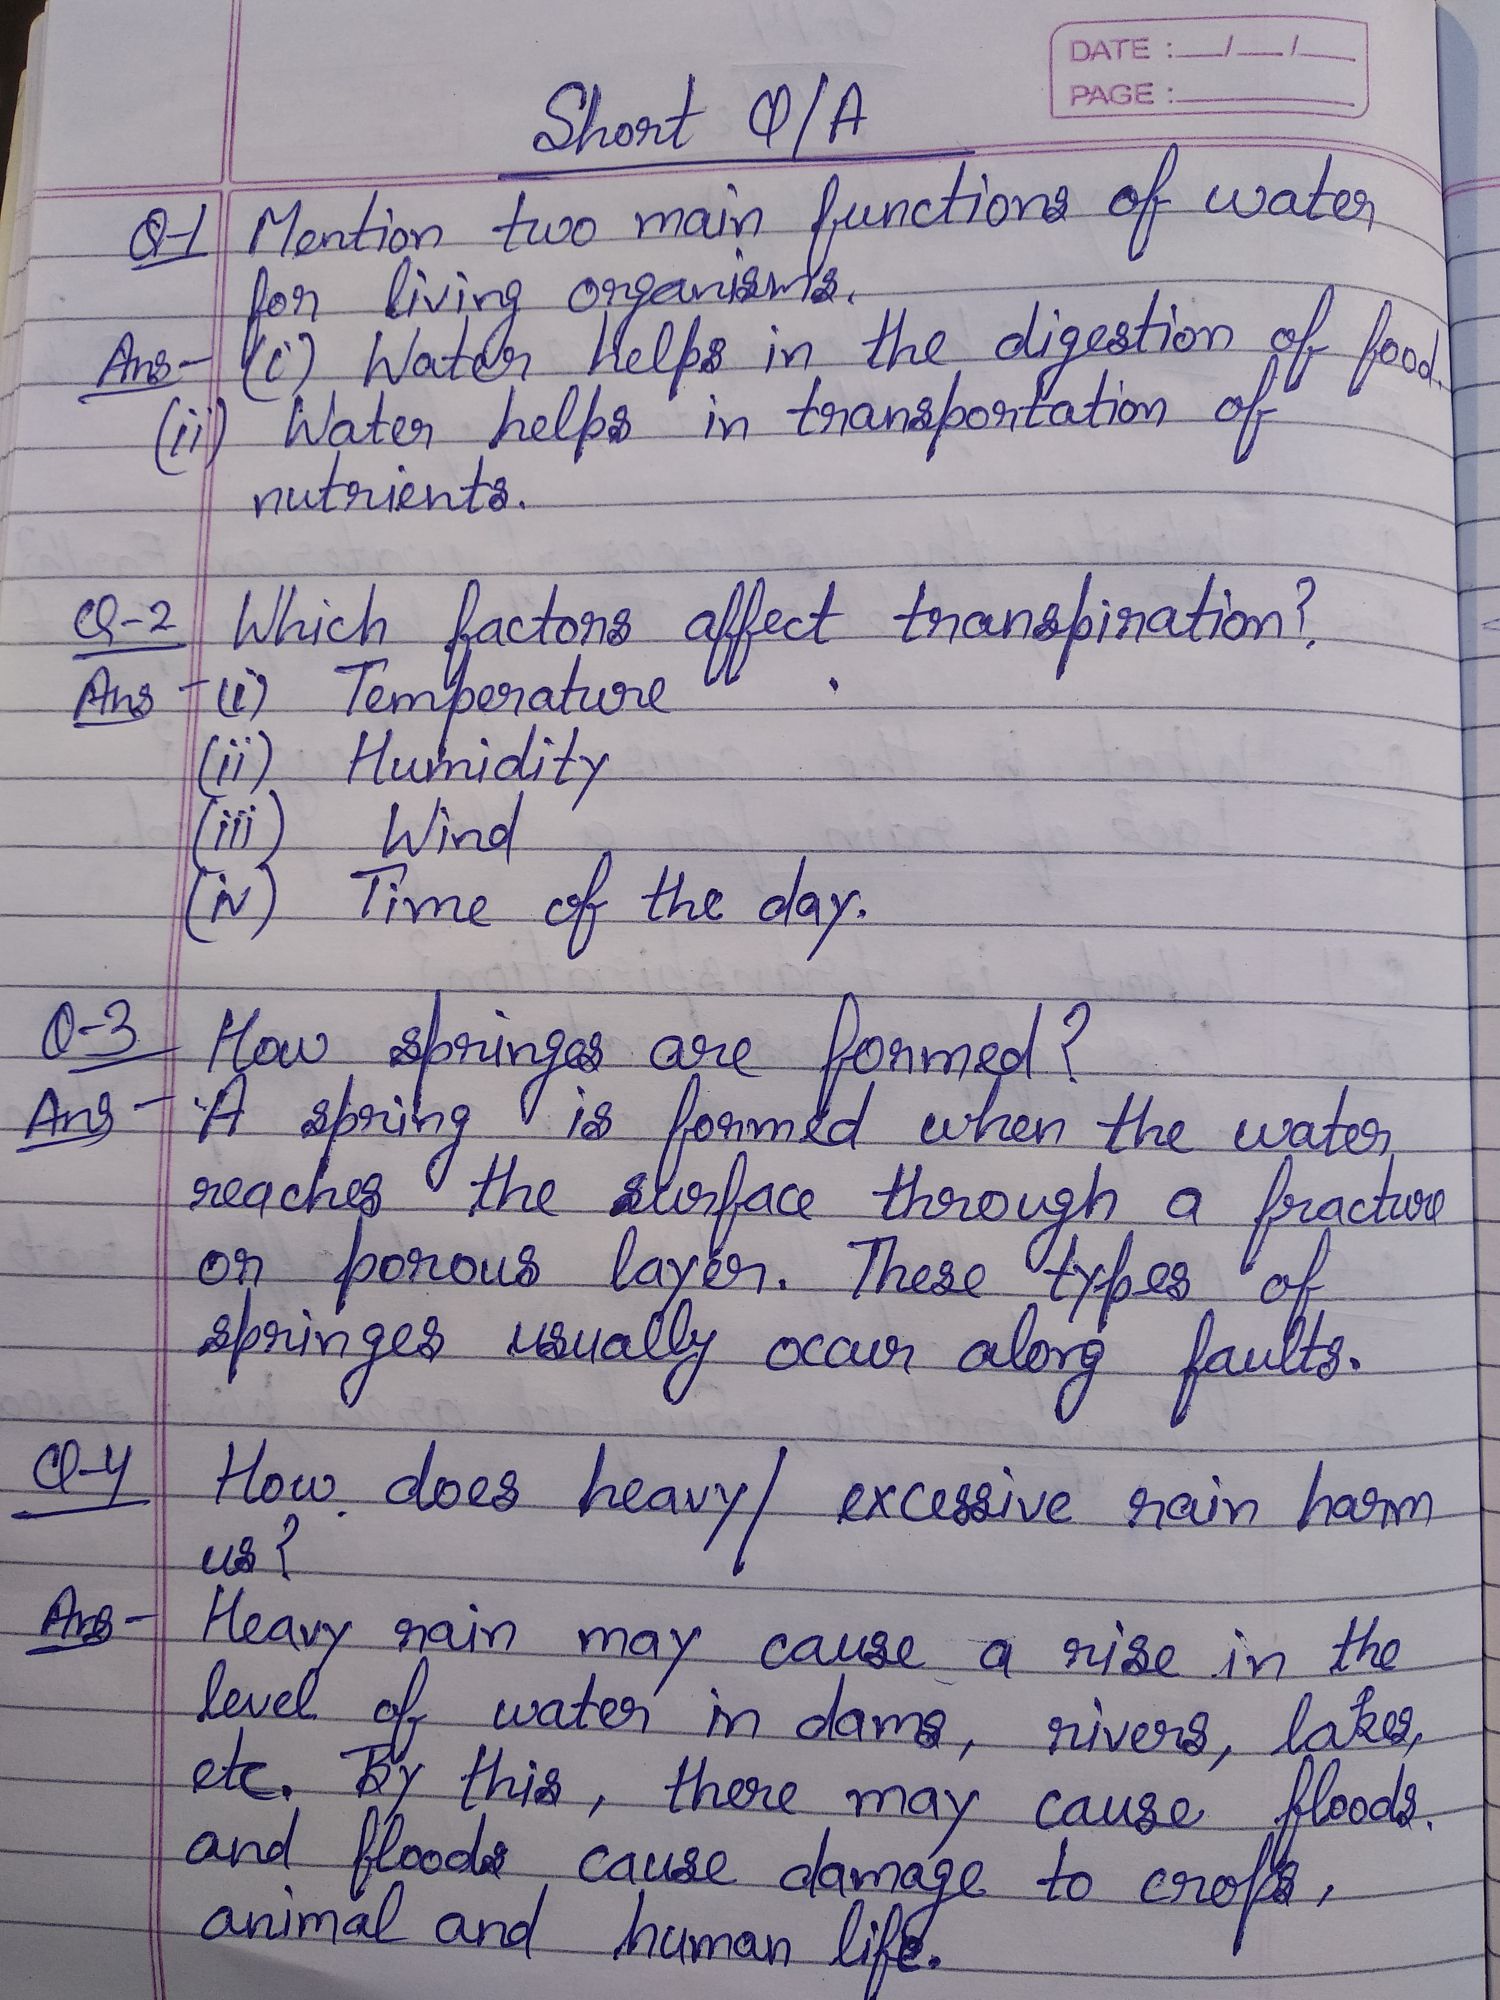 DATE : __/__/__
PAGE : ________
Short Q/A
Q-1 Mention two main functions of water
for living organisms.
Ans- (i) Water helps in the digestion of food.
(ii) Water helps in transportation of
nutrients.
Q-2 Which factors affect transpiration?
Ans - (i) Temperature
(ii) Humidity
(iii) Wind
(iv) Time of the day.
Q-3 How springes are formed?
Ans - A spring is formed when the water
reaches the surface through a fracture
or porous layer. These types of
springes usually occur along faults.
Q-4 How does heavy/ excessive rain harm
us?
Ans- Heavy rain may cause a rise in the
level of water in dams, rivers, lakes,
etc. By this, there may cause floods.
and floods cause damage to crops,
animal and human life.